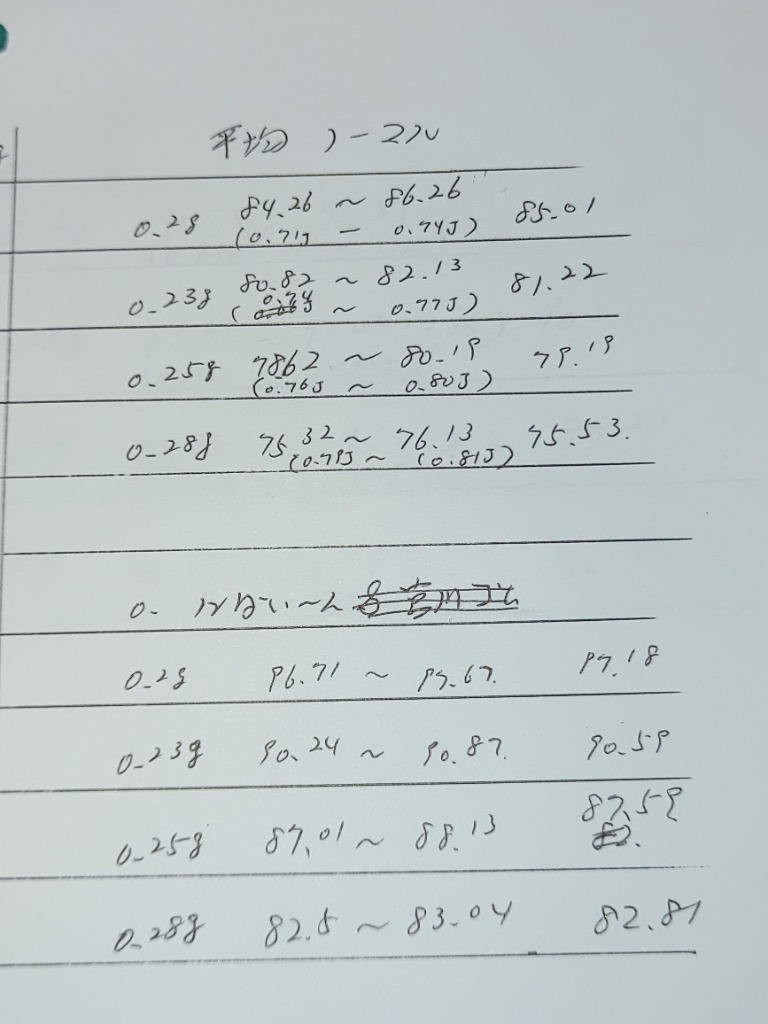 平均 ノーマル
0.2g 84.26 ～ 86.26 85.01
(0.71J － 0.74J)
0.23g 80.82 ～ 82.13 81.22
(0.74 ～ 0.77J)
0.25g 7862 ～ 80.19 79.19
(0.76J ～ 0.80J)
0.28g 75.32 ～ 76.13 75.53.
(0.79J ～ (0.81J)
0.
0.2g 96.71 ～ 97.67. 97.18
0.23g 90.24 ～ 90.87. 90.59
0.25g 87.01 ～ 88.13 87.59
0.28g 82.5 ～ 83.04 82.81